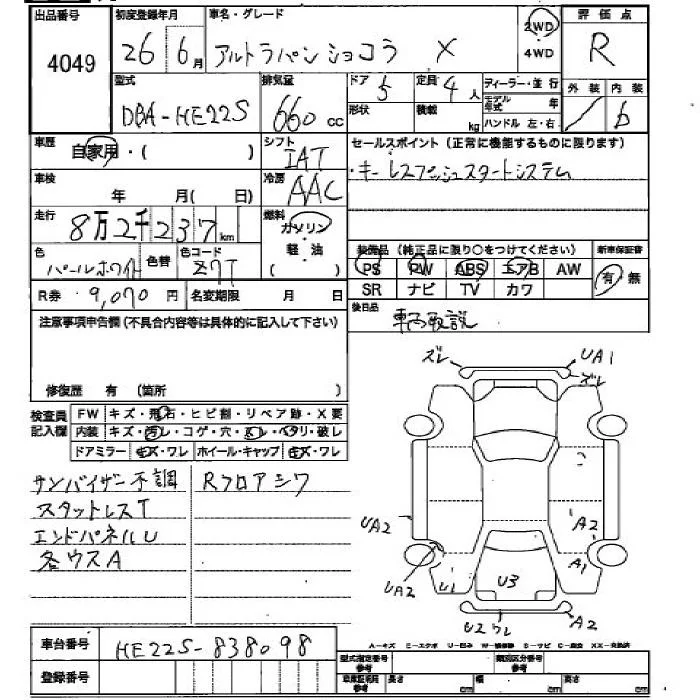 出品番号 初度登録年月 車名・グレード 2WD 評価点
4049 26 6月 アルトラパン ショコラ X 4WD R
型式 排気量 ドア 5 定員 4人 ディーラー・並行 外装 内装
DBA-HE22S 660cc 形状 積載 kg モデル年式 年 b
ハンドル 左・右
車歴 自家用・( ) シフト IAT セールスポイント(正常に機能するものに限ります)
車検 年 月( 日) 冷房 AAC キーレスプッシュスタートシステム
走行 8万2千237km 燃料 ガソリン・軽油
装備品(純正品に限り○をつけてください) 新車保証書
色 パールホワイト 色替 色コード Z7T PS PW ABS エアB AW 有・無
R券 9,070円 名変期限 月 日 SR ナビ TV カワ
注意事項申告欄(不具合内容等は具体的に記入して下さい) 後日品 車両取説
修復歴 有(箇所 )
ズレ UA1
ズレ
検査員記入欄 FW キズ・飛石・ヒビ割・リペア跡・X要
内装 キズ・汚レ・コゲ・穴・スレ・ヘタリ・破レ
ドアミラー キズ・ワレ ホイール・キャップ キズ・ワレ
サンバイザー不調 Rフロアシワ
スタットレスT
エンドパネルU
各ウスA
UA2 A2
UA2 U1 U3 A1
U2ワレ A2
車台番号 HE22S-838098
A-キズ E-エクボ U-凹み W-補修跡 S-サビ C-腐食 XX-交換済
登録番号 型式指定番号 参考 類別区分番号 参考
車庫証明用 参考 長さ cm 幅 cm 高さ cm